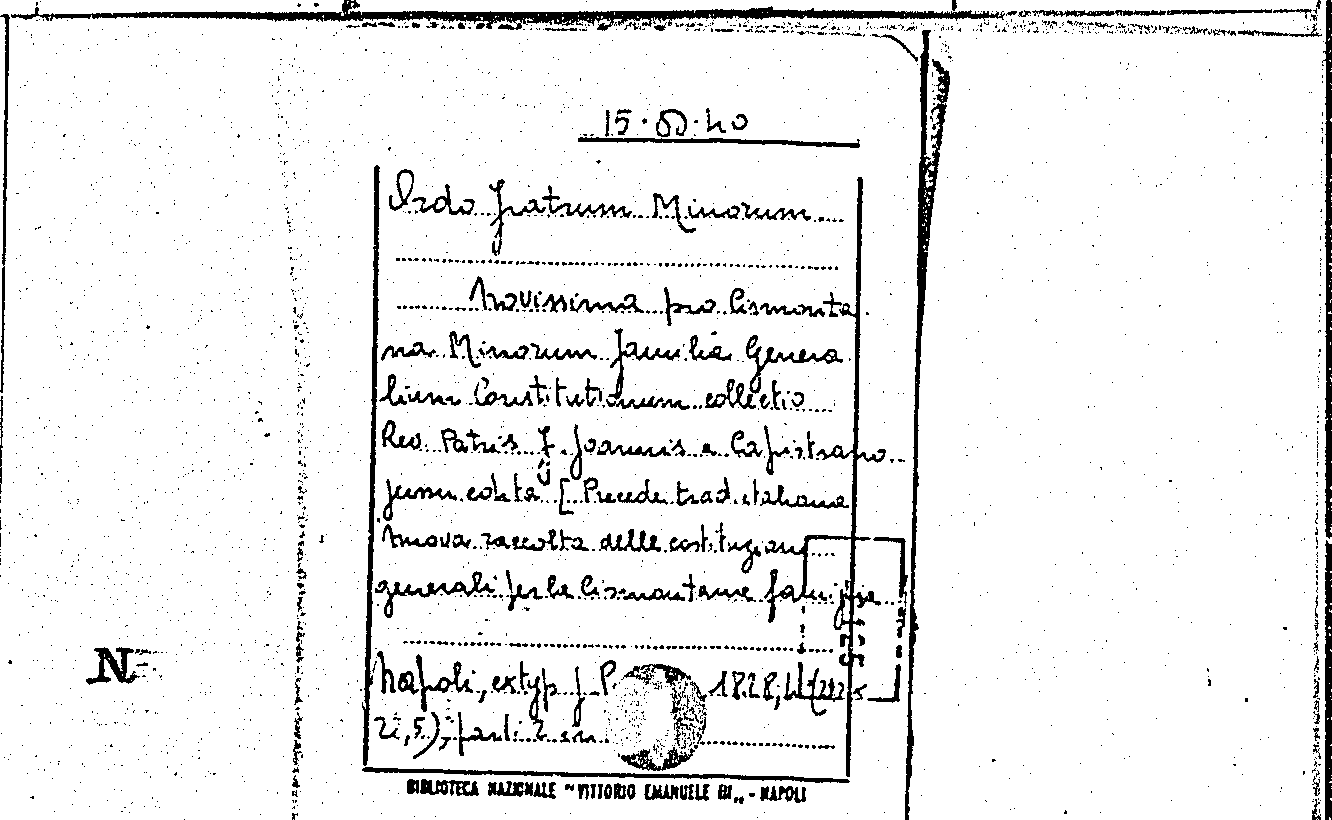 15. .40
Ordo fratrum Minorum
Novissima pro Cismonta
na Minorum familia Genera
lium Constitutionum collectio
Rev. Patris F. Joannis a Capistrano
jussu edita [Precede trad. italiana
Nuova raccolta delle costituzioni
generali per le Cismontane famiglie
Napoli, ex typ. f. 1828,
21,5); parti 2 in
N
BIBLIOTECA NAZIONALE "VITTORIO EMANUELE III„ - NAPOLI